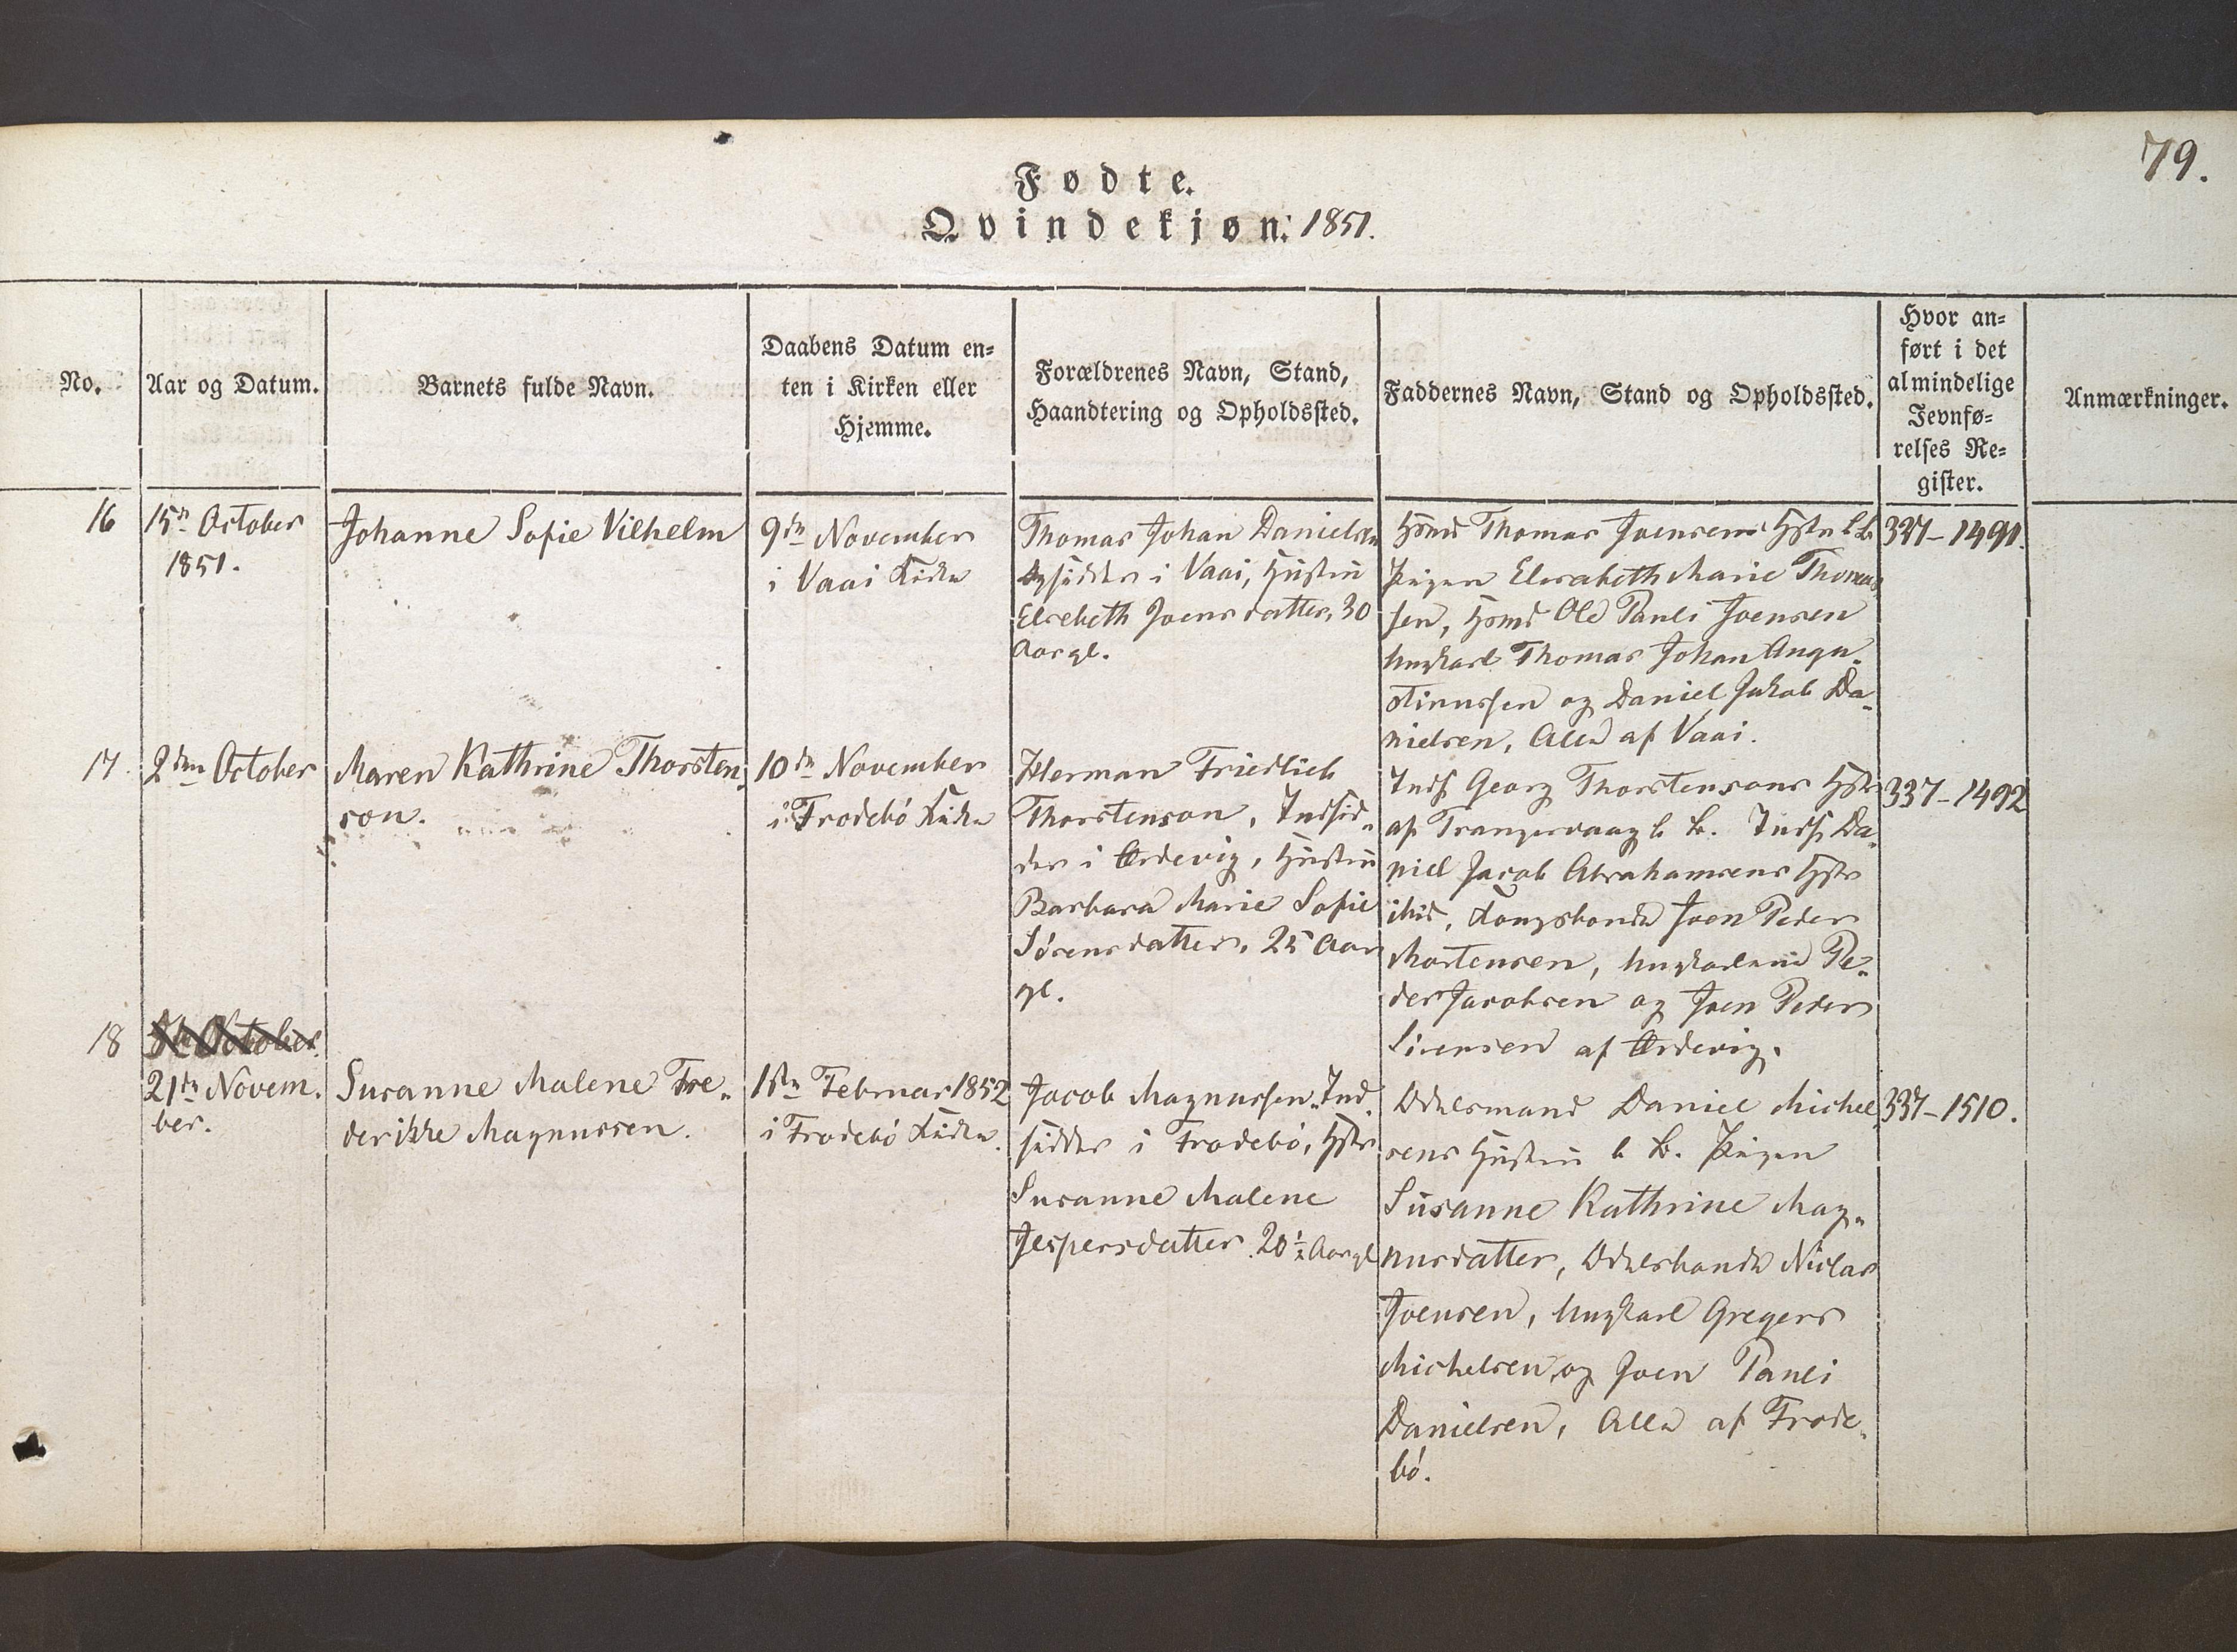 79.
Fødte.
Qvindekjøn: 1851.
No.
Aar og Datum.
Barnets fulde Navn.
Daabens Datum en=
ten i Kirken eller
Hjemme.
Forældrenes Navn, Stand,
Haandtering og Opholdssted.
Faddernes Navn, Stand og Opholdssted.
Hvor an=
ført i det
almindelige
Jevnfø=
relses Re=
gister.
Anmærkninger.
16
15de October
1851.
Johanne Sofie Vilhelm
9de November
i Vaai Kirke
Thomas Johan Danielsen
i Vaai, Hustru
Elsebeth Joensdatter, 30
Aar gl.
Hsmd Thomas Joensens Hstr b. B.
Pigen Elesabeth Marie Thomas
sen, Hsmd Ole Pauli Joensen
Ungkarl Thomas Johan Augu-
stinussen og Daniel Jakob Da-
nielsen, Alle af Vaai.
337-1491.
17.
2den October
Maren Kathrine Thorsten-
son.
10de November
i Frodebö Kirke
Herman Friedlieb
Thorstenson, Indsid-
der i Ørdevig, Hustru
Barbara Marie Sofie
Sörensdatter, 25 Aar
gl.
Inds. Georg Thorstensons Hstr
af Trangisvaag b. B. Inds. Da-
niel Jacob Abrahamsens Hstr
ibid, Kongsbonde Joen Peder
Mortensen, Ungkarlene Pe-
der Jacobsen og Joen Peder
Simensen af Ørdevig.
337-1492
18
21de Novem-
ber.
Susanne Malene Fre-
derikke Magnussen.
1ste Februar 1852
i Frodebö Kirke.
Jacob Magnussen, Ind-
sidder i Frodebö, Hstr
Susanne Malene
Jespersdatter 20½ Aar gl
Odelsmand Daniel Michel
sens Hustru b. B. Pigen
Susanne Kathrine Mag-
nusdatter, Odelsbonde Niclas
Joensen, Ungkarl Gregers
Michelsen og Joen Pauli
Danielsen, Alle af Frode-
bö.
337-1510.